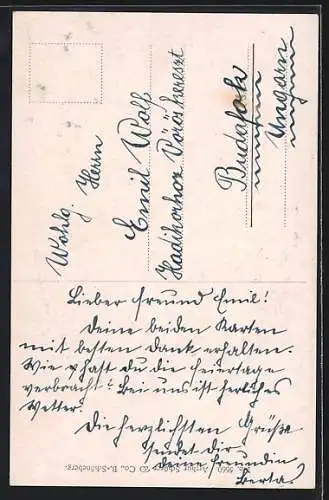 Wohlg. Herrn
Emil Wolf
Hadikorhoz Vörös kereszt
Budafok
Ungarn
Lieber Freund Emil!
Deine beiden Karten
mit besten Dank erhalten.
Wie hast du die Feiertage
verbracht? Bei uns ist herliches
Wetter.
Die herzlichsten Grüße
sendet dir
deine Freundin
Berta.
Arthur & Co., B.-Schöneberg